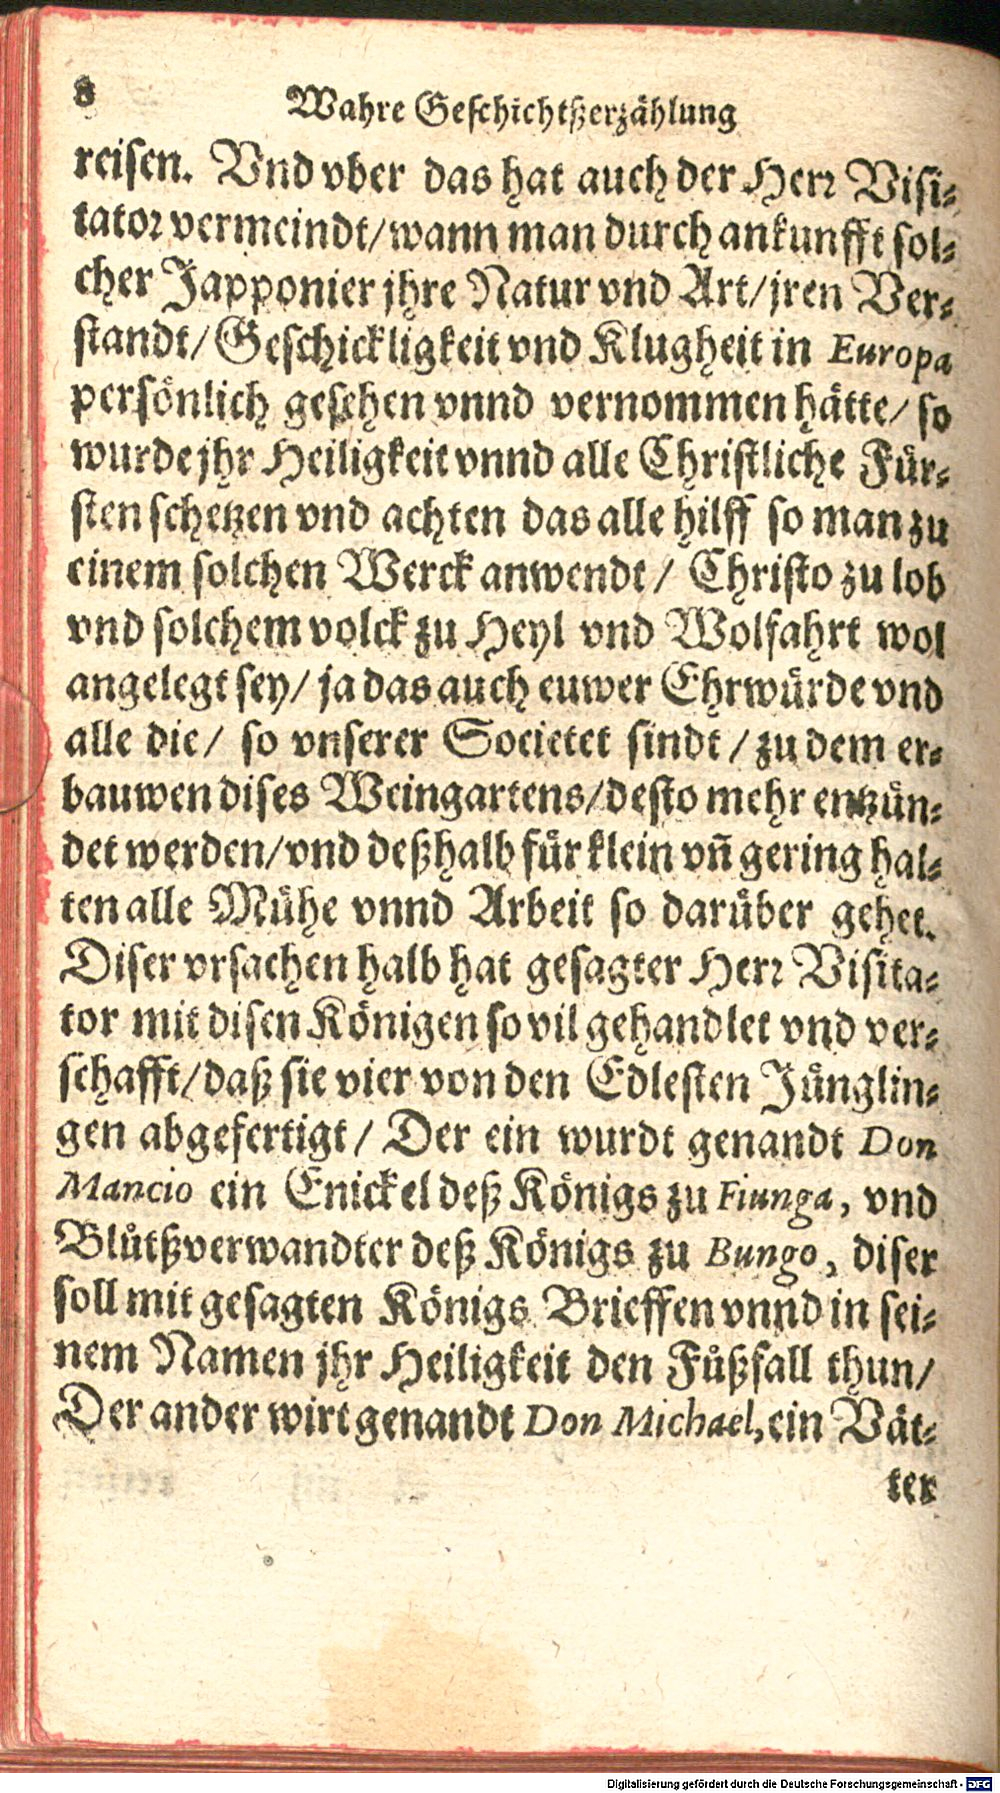 8
Wahre Geschichtßerzählung
reisen. Vnd vber das hat auch der Herr Visi-
tator vermeindt/wann man durch ankunfft sol-
cher Japponier jhre Natur vnd Art/jren Ver-
standt/Geschickligkeit vnd Klugheit in Europa
persönlich gesehen vnnd vernommen hätte/ so
wurde jhr Heiligkeit vnnd alle Christliche Für-
sten schetzen vnd achten das alle hilff so man zu
einem solchen Werck anwendt/ Christo zu lob
vnd solchem volck zu Heyl vnd Wolfahrt wol
angelegt sey/ ja das auch euwer Ehrwürde vnd
alle die/ so vnserer Societet sindt/zu dem er-
bauwen dises Weingartens/desto mehr entzün-
det werden/vnd deßhalb für klein vñ gering hal-
ten alle Mühe vnnd Arbeit so darüber gehet.
Diser vrsachen halb hat gesagter Herr Visita-
tor mit disen Königen so vil gehandlet vnd ver-
schafft/daß sie vier von den Edlesten Jüngli‌n-
gen abgefertigt/ Der ein wurdt genandt Don
Mancio ein Enickel deß Königs zu Fiunga, vnd
Blůtßverwandter deß Königs zu Bungo, diser
soll mit gesagten Königs Brieffen vnnd in sei-
nem Namen jhr Heiligkeit den Fůßfall thun/
Der ander wirt genandt Don Michael, ein Vät-
ter
Digitalisierung gefördert durch die Deutsche Forschungsgemeinschaft - DFG